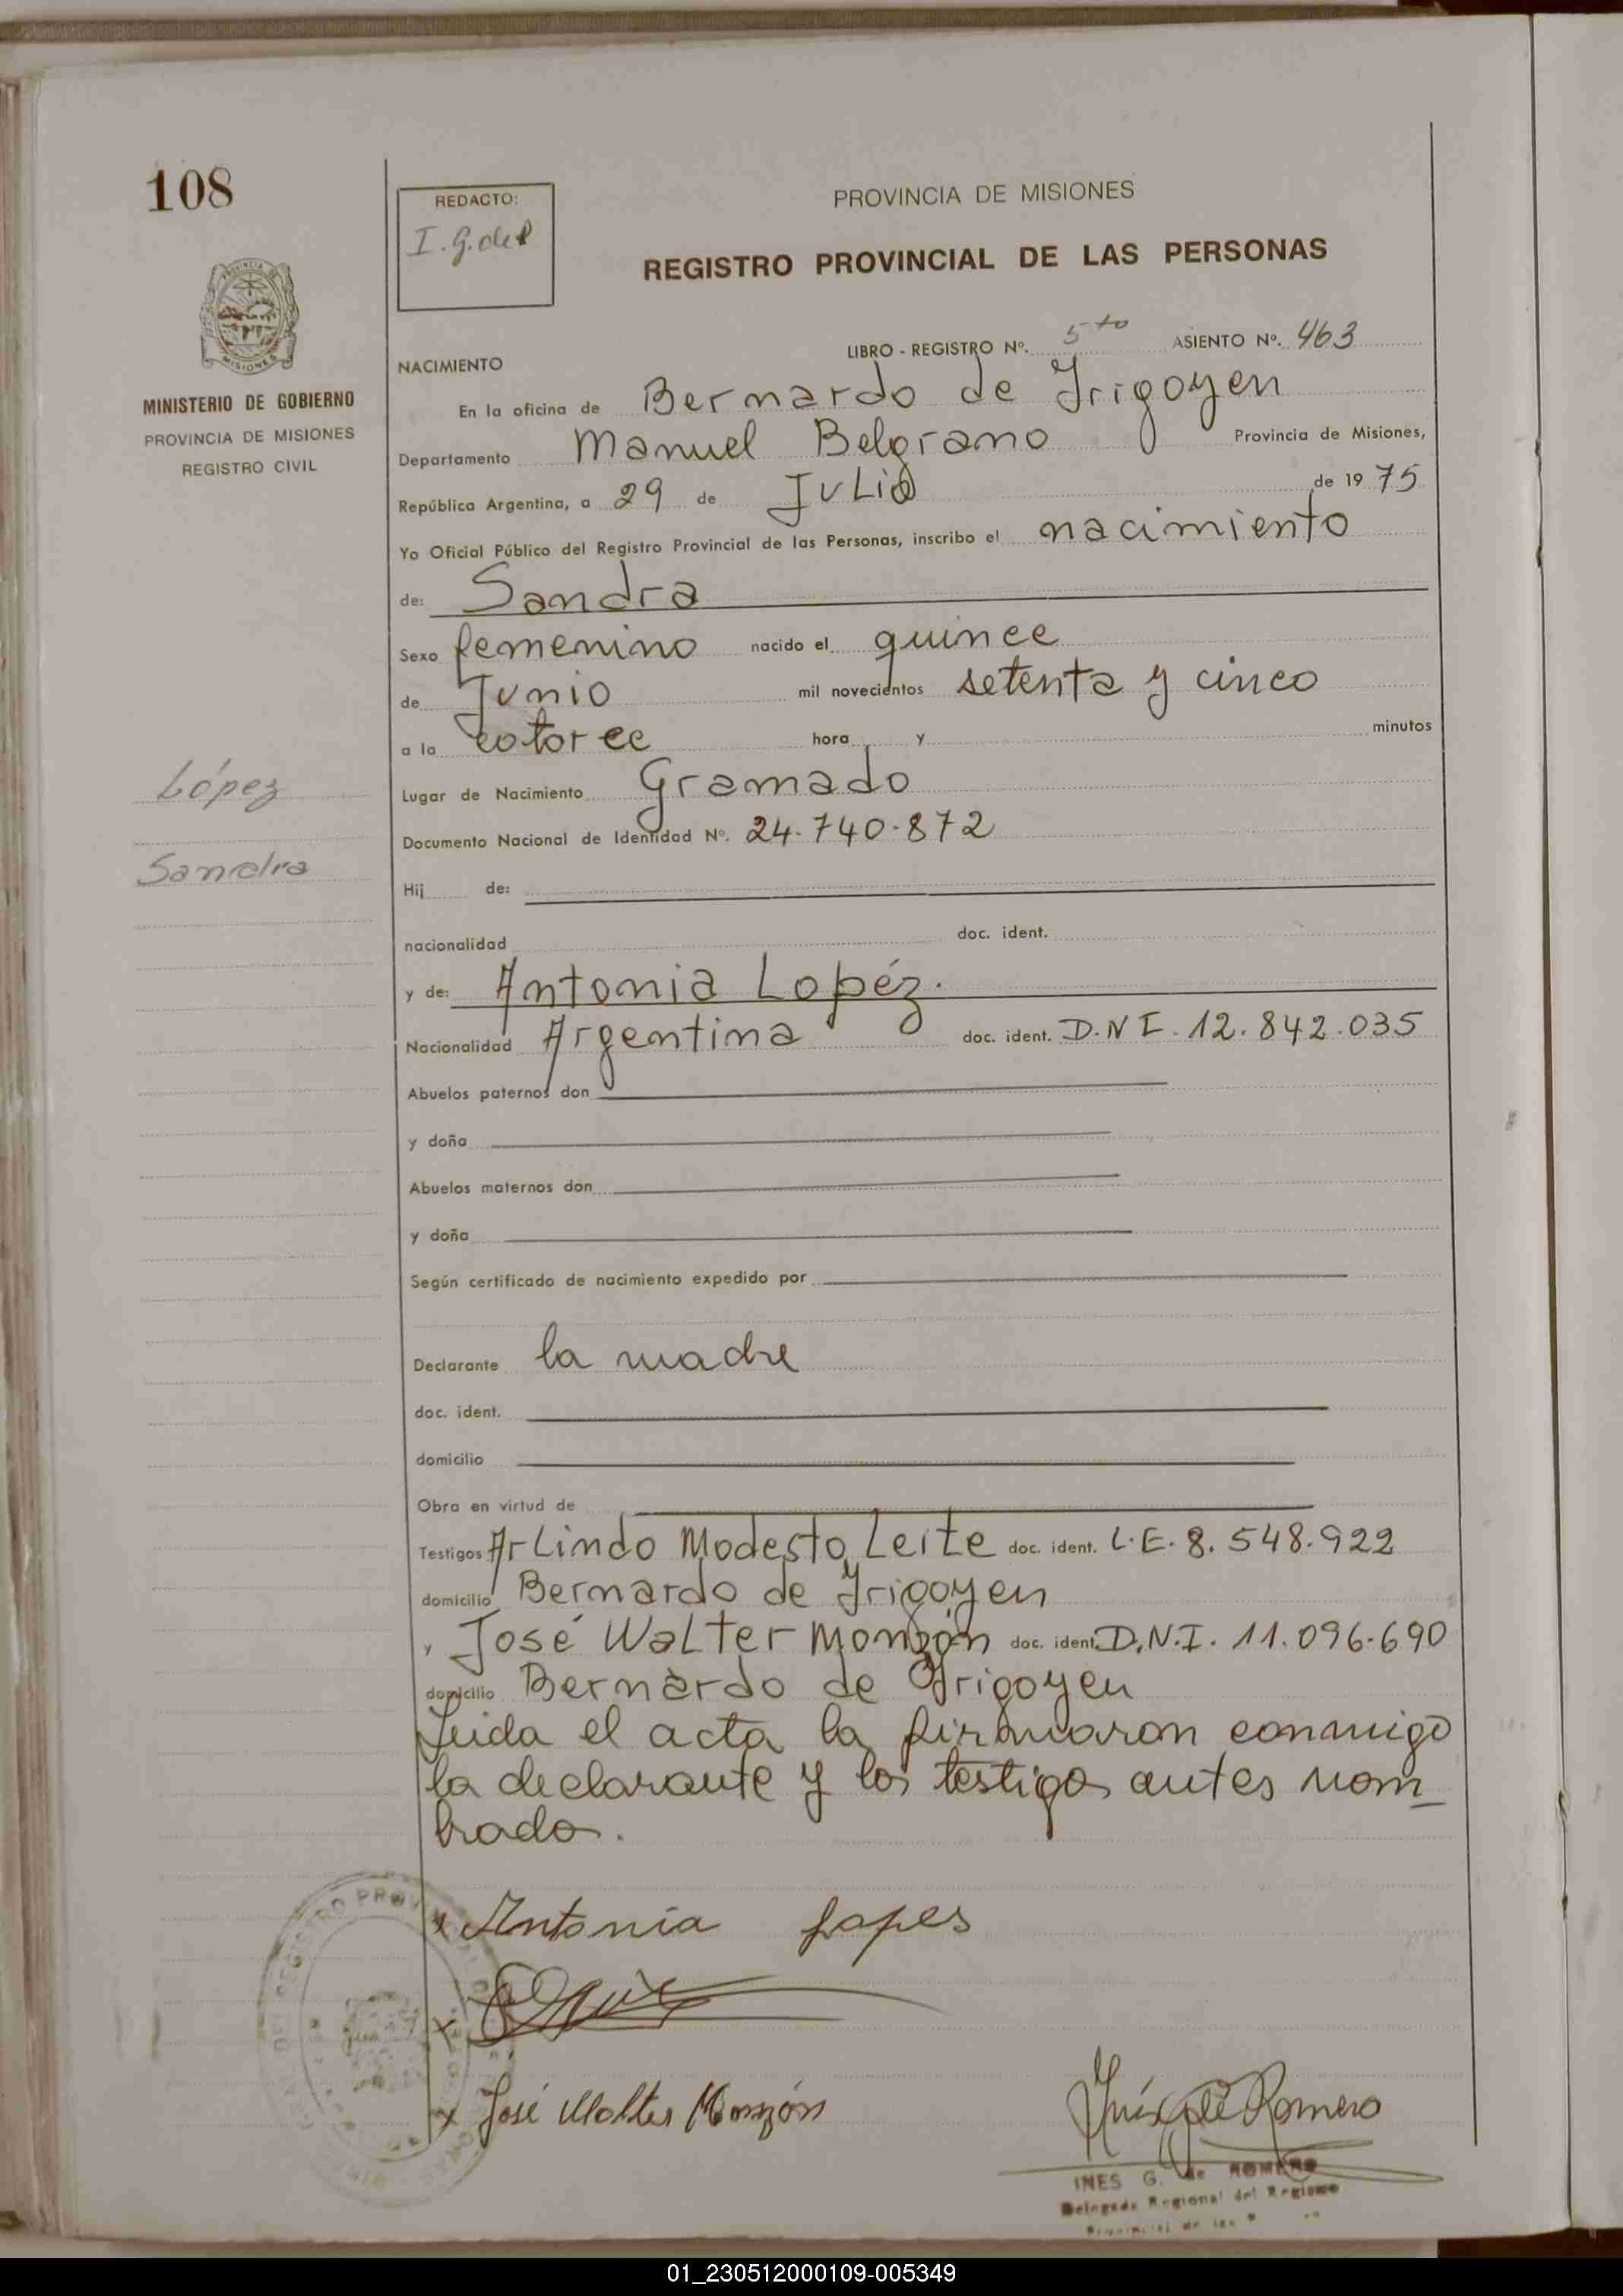 108
REDACTO:
I.G. de R
PROVINCIA DE MISIONES
REGISTRO PROVINCIAL DE LAS PERSONAS
PROVINCIA DE
MISIONES
MINISTERIO DE GOBIERNO
PROVINCIA DE MISIONES
REGISTRO CIVIL
López
Sandra
NACIMIENTO LIBRO - REGISTRO Nº. 5to ASIENTO Nº. 463
En la oficina de Bernardo de Irigoyen
Departamento Manuel Belgrano Provincia de Misiones,
República Argentina, a 29 de Julio de 1975
Yo Oficial Público del Registro Provincial de las Personas, inscribo el nacimiento
de: Sandra
Sexo femenino nacido el quince
de Junio mil novecientos setenta y cinco
a la catorce hora y minutos
Lugar de Nacimiento Gramado
Documento Nacional de Identidad Nº. 24.740.872
Hij de:
nacionalidad doc. ident.
y de: Antonia Lopéz.
Nacionalidad Argentina doc. ident. D.N I. 12.842.035
Abuelos paternos don
y doña
Abuelos maternos don
y doña
Según certificado de nacimiento expedido por
Declarante la madre
doc. ident.
domicilio
Obra en virtud de
Testigos Arlindo Modesto Leite doc. ident. L.E. 8.548.922
domicilio Bernardo de Irigoyen
y José Walter Monzón doc. ident. D.N.I. 11.096.690
domicilio Bernardo de Irigoyen
Leida el acta la firmaron conmigo
la declarante y los testigos antes nom
brados.
x Antonia Lopes
x
x José Walter Monzón
Inés G de Romero
INES G. de ROMERO
Delegada Regional del Registro
Provincial de las
01_230512000109-005349